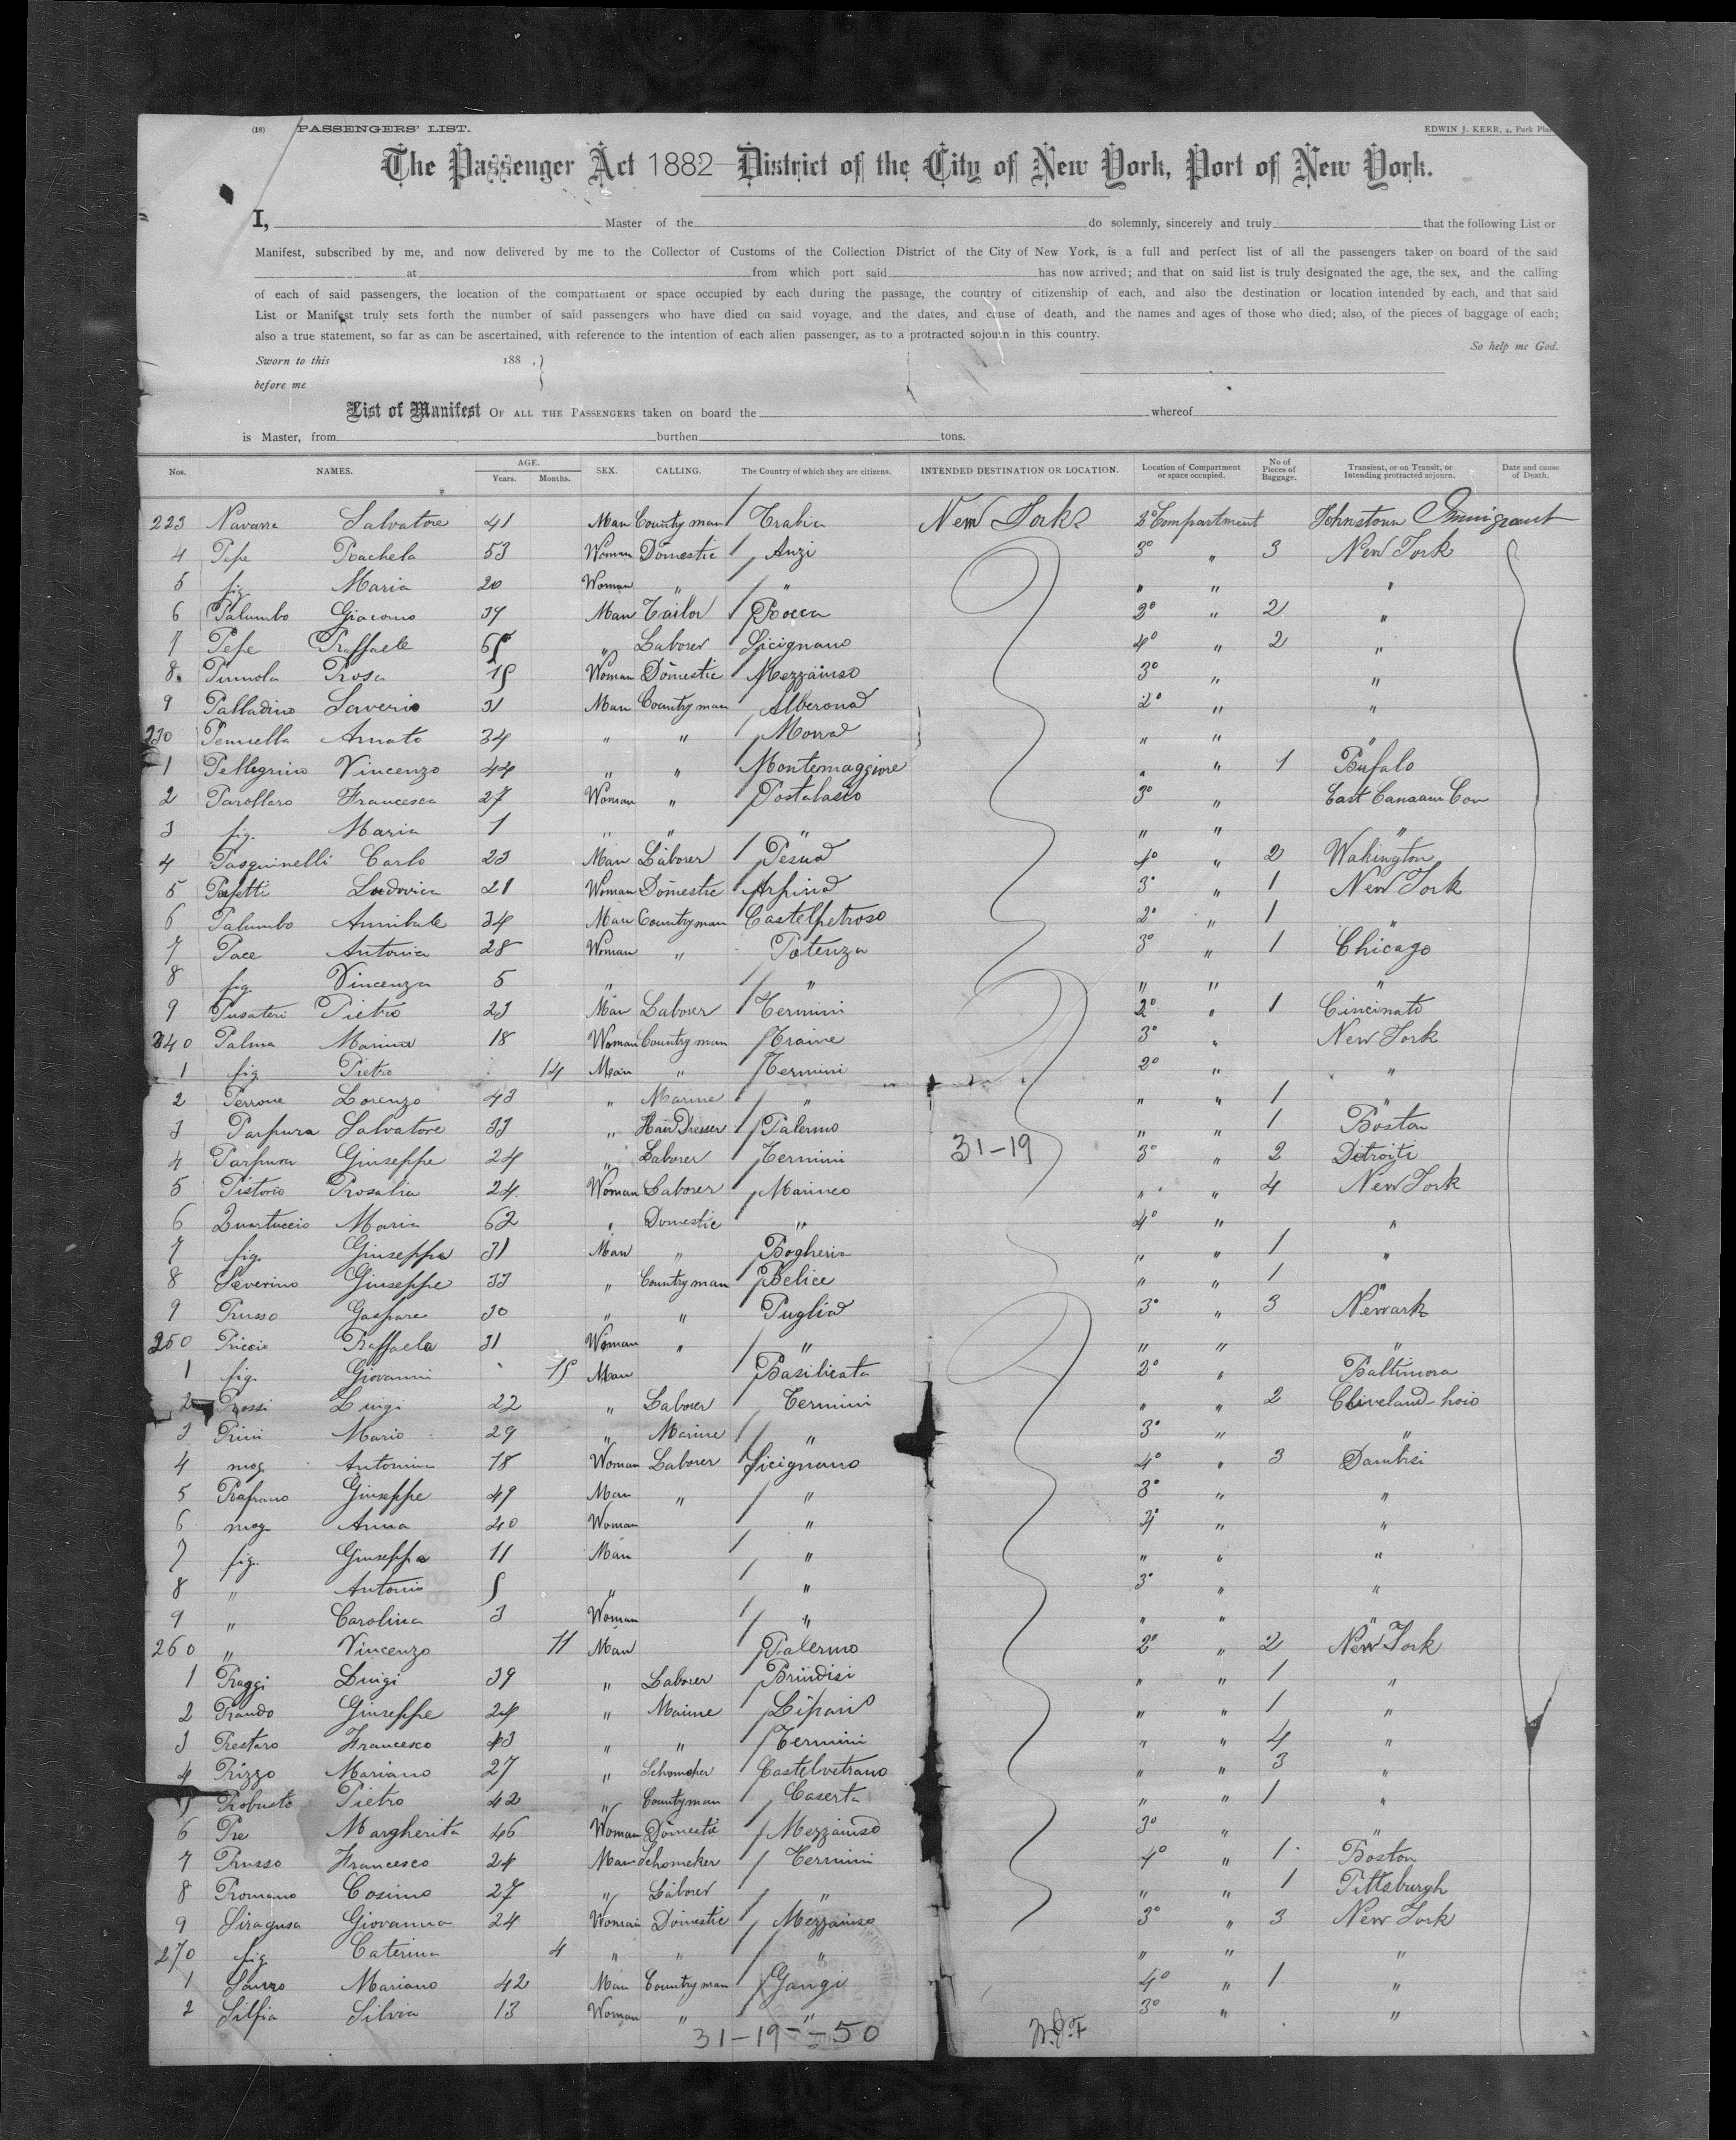 (18) PASSENGERS' LIST. EDWIN J. KERR, 4, Park Plac
The Passenger Act 1882 District of the City of New York, Port of New York.
I, Master of the do solemnly, sincerely and truly that the following List or
Manifest, subscribed by me, and now delivered by me to the Collector of Customs of the Collection District of the City of New York, is a full and perfect list of all the passengers taken on board of the said
at from which port said has now arrived; and that on said list is truly designated the age, the sex, and the calling
of each of said passengers, the location of the compartment or space occupied by each during the passage, the country of citizenship of each, and also the destination or location intended by each, and that said
List or Manifest truly sets forth the number of said passengers who have died on said voyage, and the dates, and cause of death, and the names and ages of those who died; also, of the pieces of baggage of each;
also a true statement, so far as can be ascertained, with reference to the intention of each alien passenger, as to a protracted sojourn in this country.
So help me God.
Sworn to this 188 ,}
before me
List of Manifest OF ALL THE PASSENGERS taken on board the whereof
is Master, from burthen tons.
Nos. NAMES. AGE. Years. Months. SEX. CALLING. The Country of which they are citizens. INTENDED DESTINATION OR LOCATION. Location of Compartment or space occupied. No of Pieces of Baggage. Transient, or on Transit, or Intending protracted sojourn. Date and cause of Death.
223 Navarra Salvatore 41 Man Countryman Trabia New York 2° Compartment Johnstown Emigrant
4 Pepe Rachela 53 Woman Domestic Anzi 3° " 3 New York
5 fig. Maria 20 Woman " " " " "
6 Palumbo Giacomo 37 Man Tailor Rocca 2° " 2 "
7 Pepe Raffaele 65 " Laborer Sicignano 4° " 2 "
8 Rosa 15 Woman Domestic Mezzaiuso 3° " "
9 Palladino Saverio 31 Man Countryman Alberona 2° " "
230 Pennella Amato 34 " " Morra " " "
1 Pellegrino Vincenzo 44 " " Montemaggiore " " 1 Bufalo
2 Parollaro Francesca 27 Woman " Postalasio 3° " East Canaan Con
3 fig. Maria 1 " " " " " "
4 Pasquinelli Carlo 23 Man Laborer Pesua 4° " 2 Wakington
5 Ludovica 21 Woman Domestic Arpino 3° " 1 New York
6 Palumbo Annibale 34 Man Countryman Castelpetroso 2° " 1 "
7 Pace Antonia 28 Woman " Potenza 3° " 1 Chicago
8 fig. Vincenza 5 " " " " "
9 Pusateri Pietro 23 Man Laborer Termini 2° " 1 Cincinato
240 Palma Marina 18 Woman Countryman Traine 3° " New York
1 fig. Pietro 14 Man " Termini 2° " "
2 Perrone Lorenzo 43 " Marine " " " 1 "
3 Parpura Salvatore 33 " Hair Dresser Palermo " " 1 Boston
4 Parpura Giuseppe 24 " Laborer Termini 31-19 3° " 2 Ditroiti
5 Pistorio Rosalia 24 Woman Laborer Marineo " " 4 New York
6 Quartuccio Maria 62 " Domestic " 4° " "
7 fig. Giuseppe 31 Man " Bogheria " " 1 "
8 Severino Giuseppe 33 " Countryman Belice " " 1 "
9 Russo Gaspare 30 " " Puglia 3° " 3 Newark
250 Riccio Raffaela 31 Woman " " " " "
1 fig. Giovanni 15 Man Basilicata 2° " Baltimora
2 Rossi Luigi 22 " Laborer Termini " " 2 Cliveland-hoio
3 Rini Mario 29 " Marine " 3° " "
4 mog. Antonina 18 Woman Laborer Sicignano 4° " 3 Dambisi
5 Rafrano Giuseppe 49 Man " " 3° " "
6 mog. Anna 40 Woman " 3° " "
7 fig. Giuseppe 11 Man " " " "
8 " Antonio 5 " " 3° " "
9 " Carolina 3 Woman " " " "
260 " Vincenzo 11 Man Palermo 2° " 2 New York
1 Raggi Luigi 39 " Laborer Brindisi " " 1 "
2 Rando Giuseppe 24 " Marine Lipari " " 1 "
3 Restaro Francesco 43 " " Termini " " 4 "
4 Rizzo Mariano 27 " Schomaker Castelvetrano " " 3 "
5 Robusto Pietro 42 " Countryman Caserta " " 1 "
6 Re Margherita 46 Woman Domestic Mezzaiuso 3° " "
7 Russo Francesco 24 Man Schomeker Termini 4° " 1 Boston
8 Romano Cosimo 27 " Laborer " " " 1 Pittsburgh
9 Siragusa Giovanna 24 Woman Domestic Mezzaiuso 3° " 3 New York
270 fig. Caterina 4 " " " " " "
1 Mariano 42 Man Countryman Gangi 4° " 1 "
2 Silfia Silvia 13 Woman " " 3° " "
31-19-=50